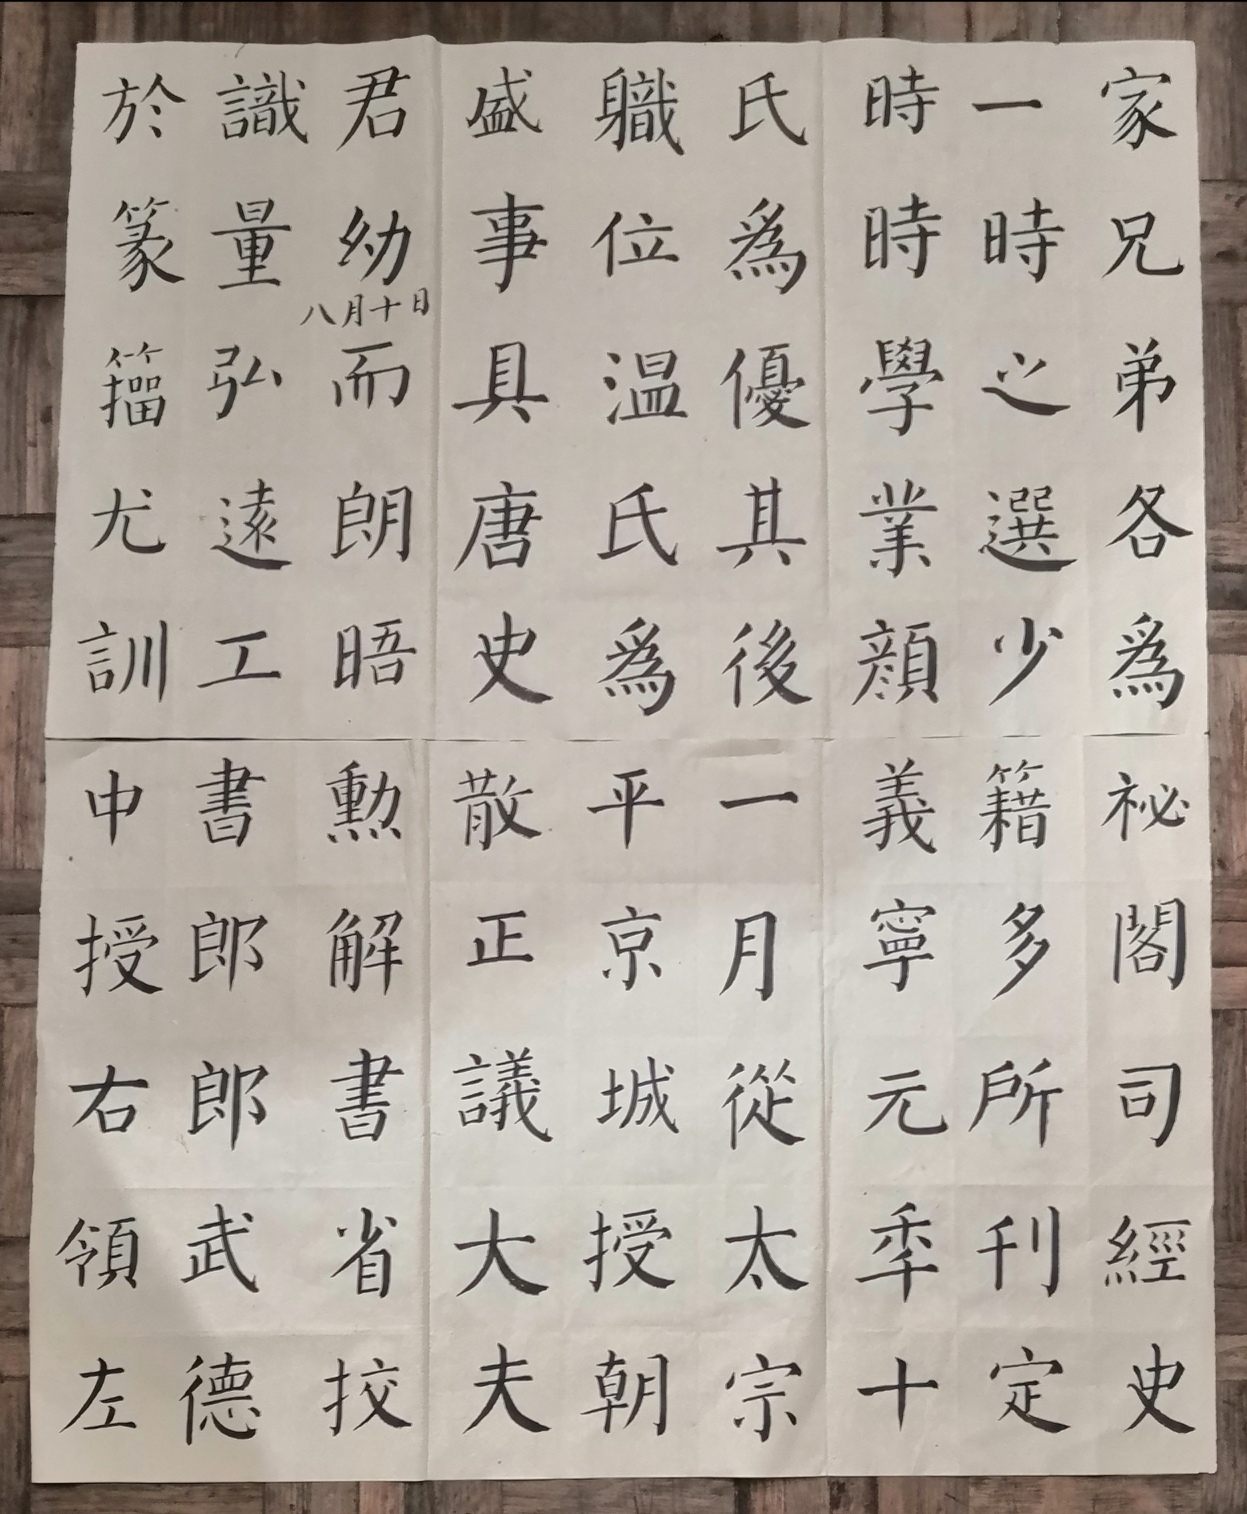 家兄弟各爲
一時之選少
時時學業顔
氏爲優其後
軄位温氏爲
盛事具唐史
君幼而朗晤
八月十日
識量弘遠工
於篆籀尤訓
祕閣司經史
籍多所刊定
義寧元秊十
一月從太宗
平京城授朝
散正議大夫
勳解書省挍
書郎郎武德
中授右領左